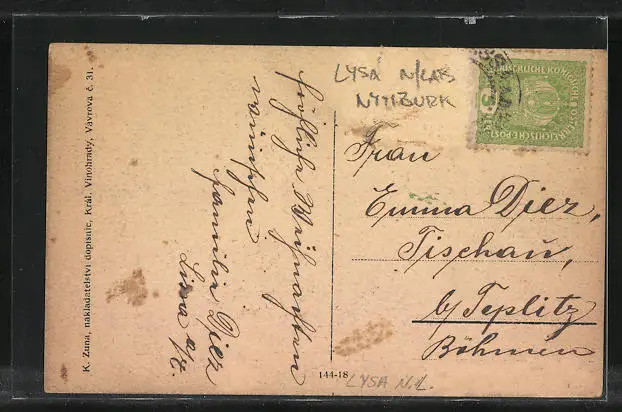 K. Zuna, nakladatelství dopisnic, Král. Vinohrady, Vávrova č. 31.
fröhliche Weihnachten
wünschen
Familie Diez
Lissa a/E.
LYSÁ N/LAB
NYMBURK
KAISERLICHE KÖNIGLICHE ÖSTERREICHISCHE POST
5
Frau
Emma Diez,
Tischau,
b/ Teplitz
Böhmen
144-18
LYSA N.L.